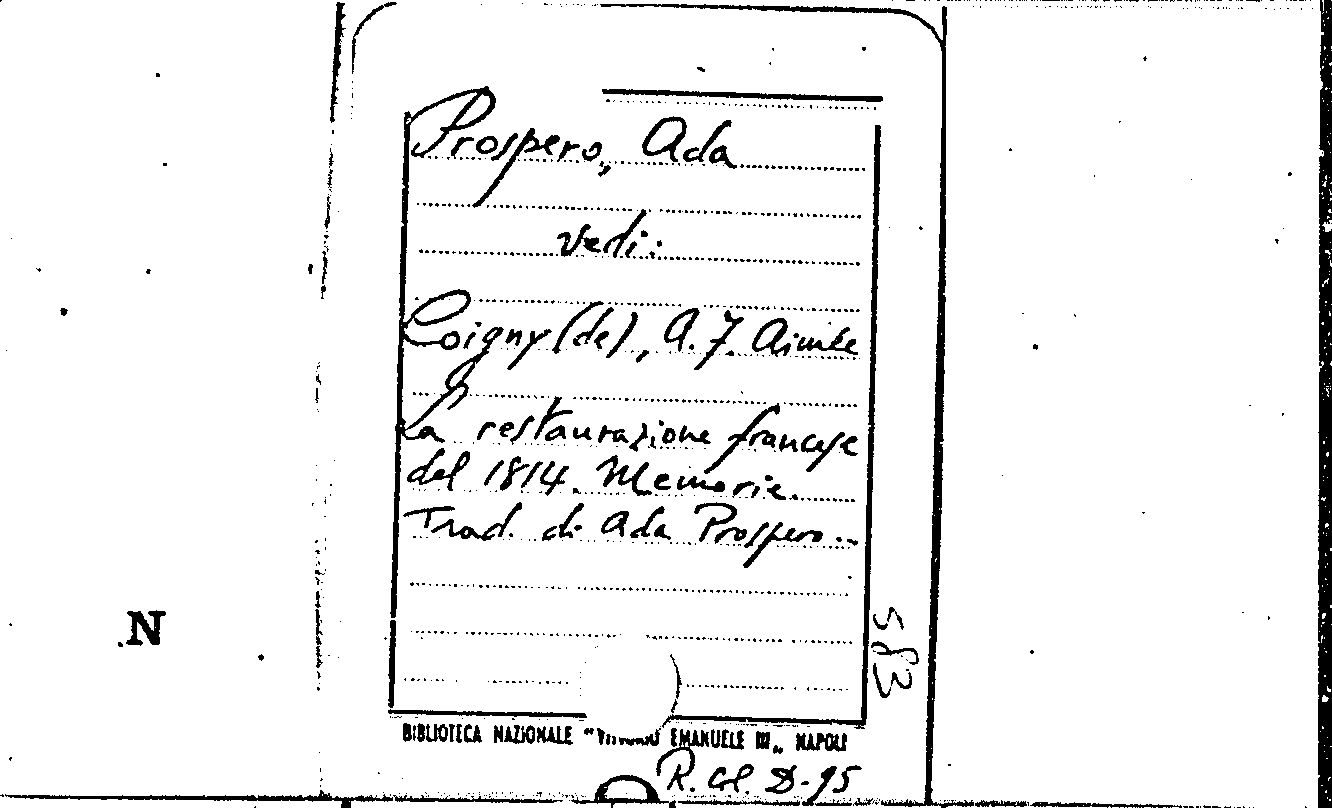 Prospero, Ada
vedi:
Coigny (de), A. F. Aimée
La restaurazione francese
del 1814. Memorie.
Trad. di Ada Prospero..
583
N
BIBLIOTECA NAZIONALE "VITTORIO EMANUELE III„ NAPOLI
R. Gl. D-95